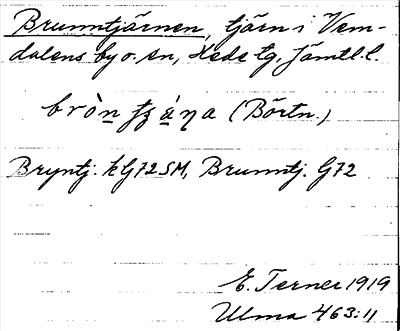 Brunntjärnen, tjärn i Vem-
dalens by o. sn, Hede tg, Jämtl. l.
(Börtn.)
Bryntj. k G72 SM, Brunntj. G72
E. Terner 1919
Ulma 463:11